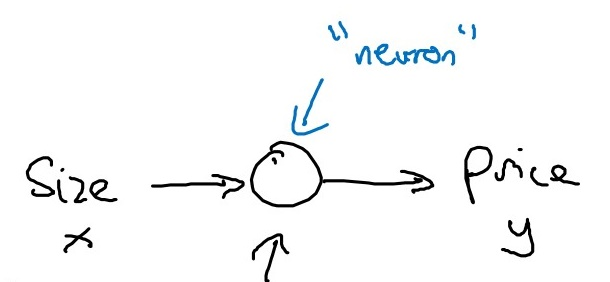 "neuron"
Size
x
price
y